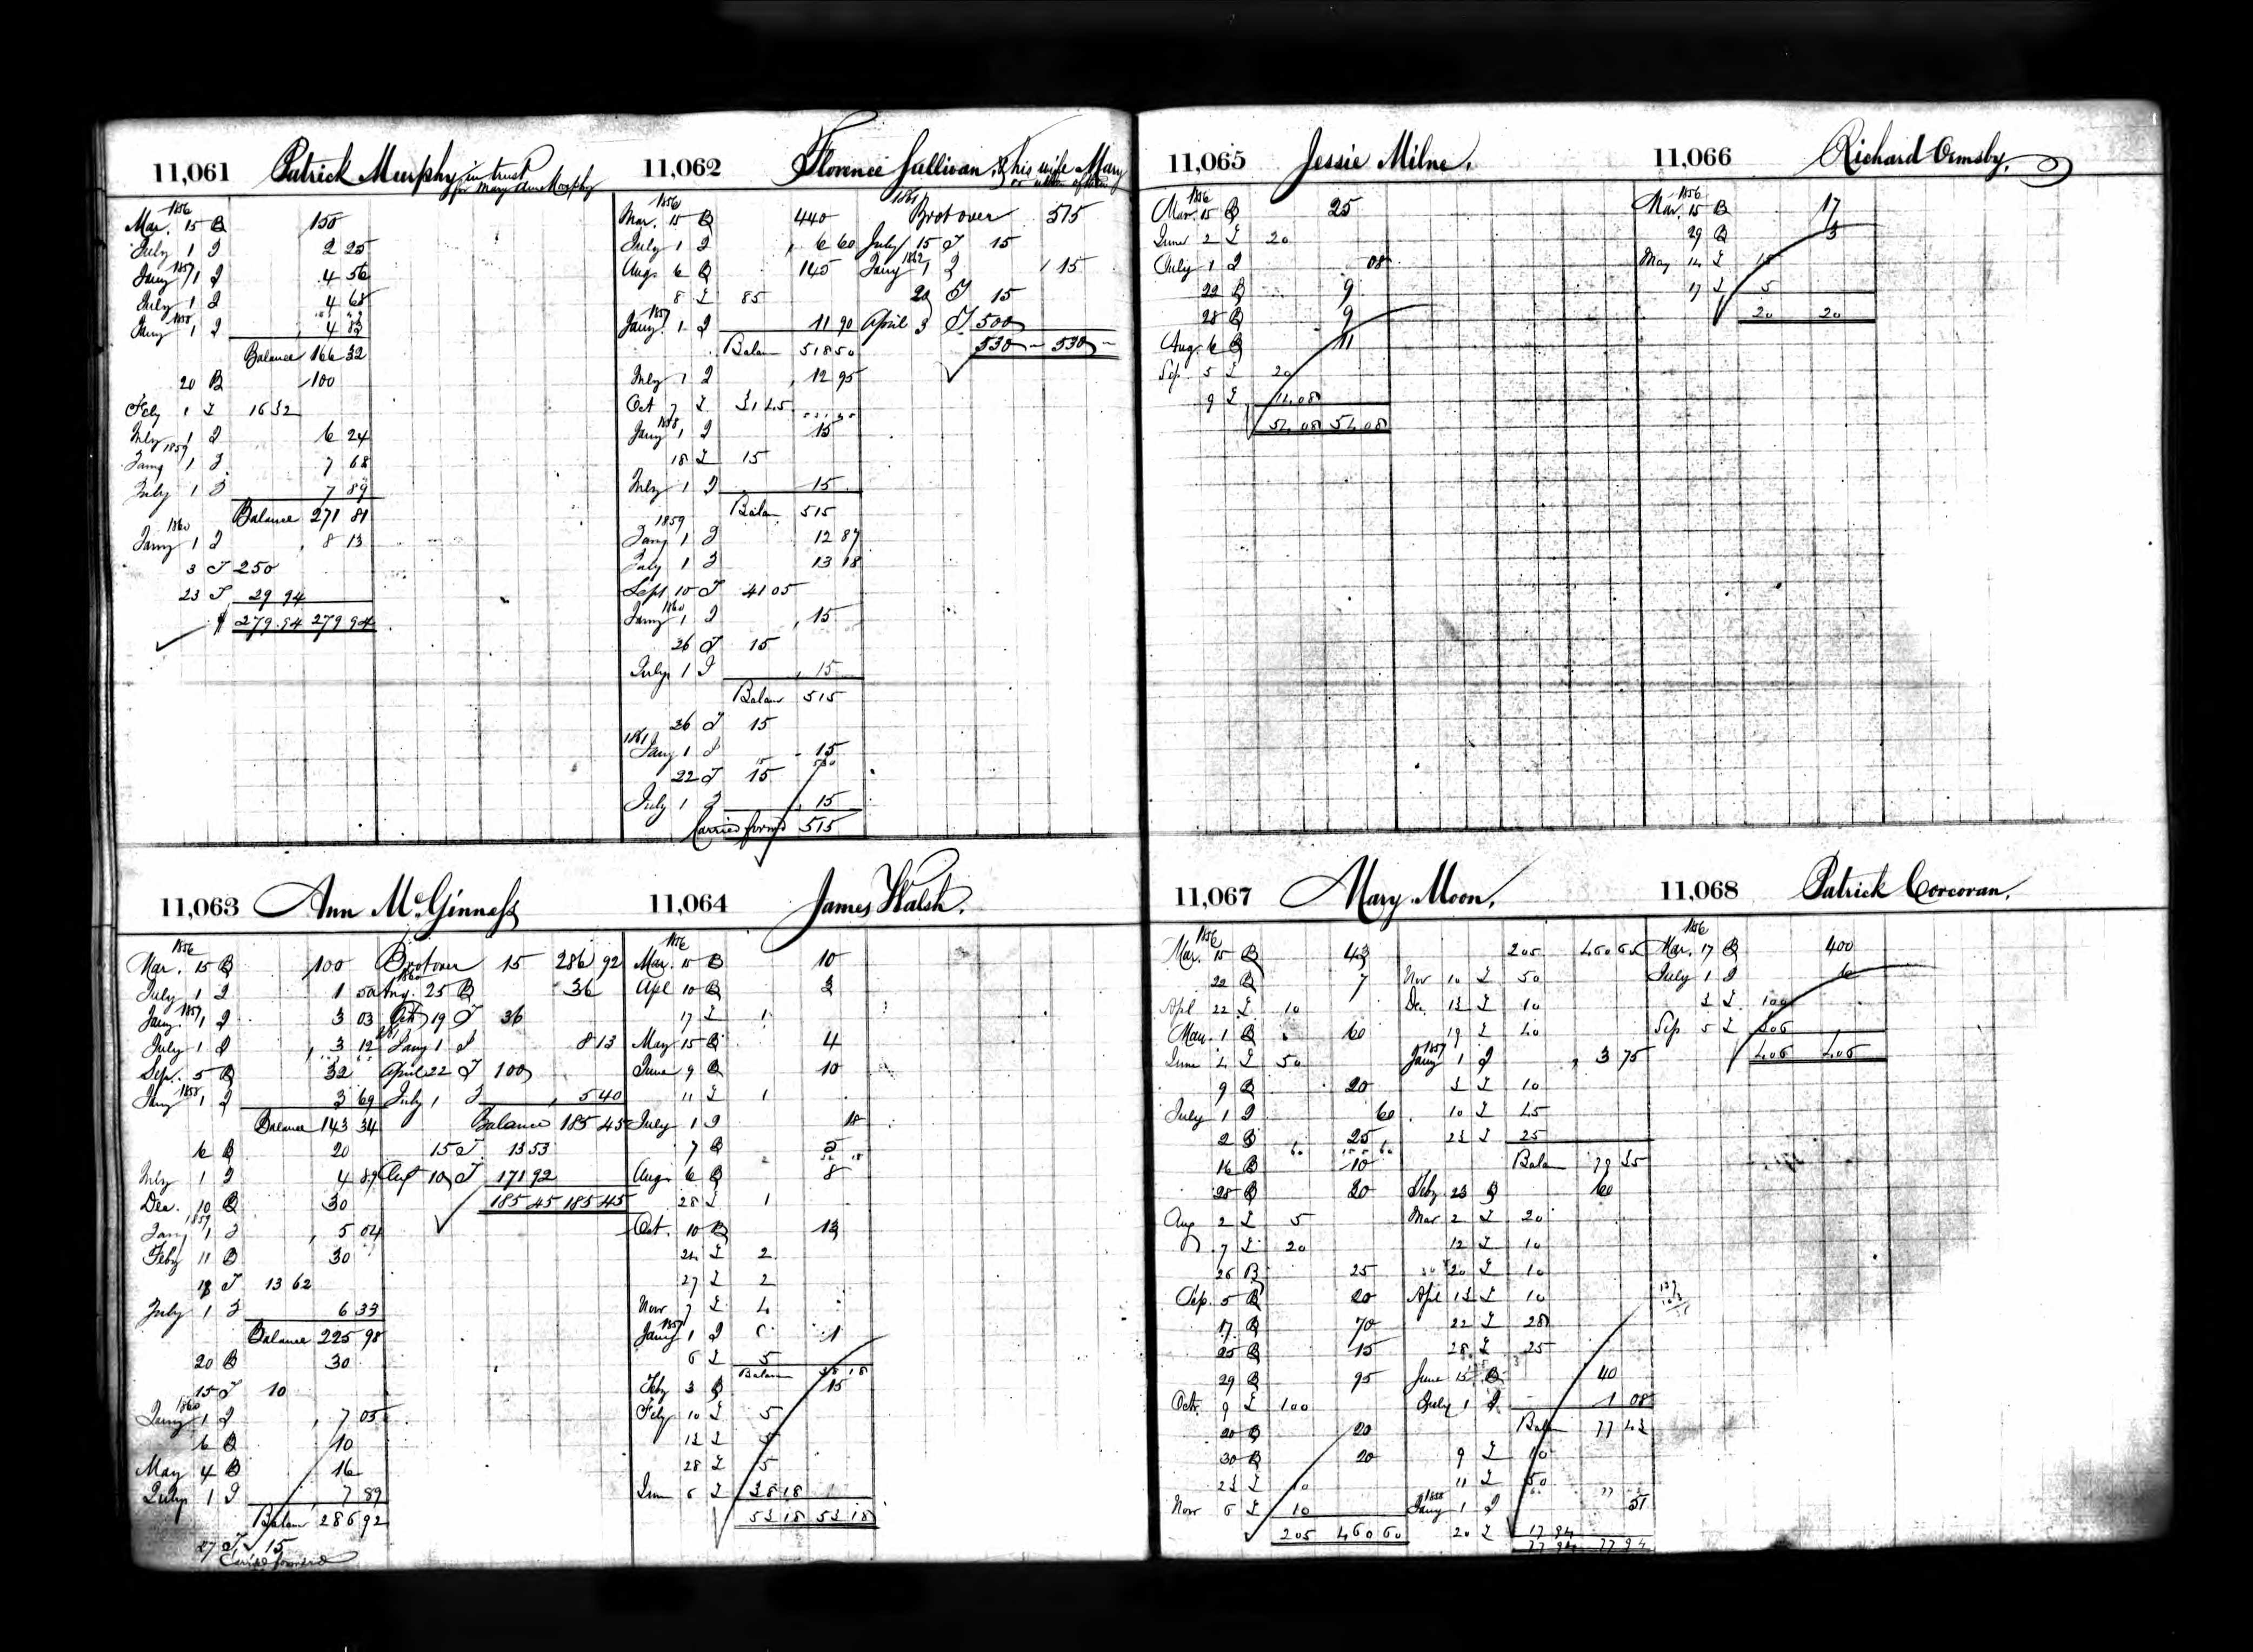 11,061 Patrick Murphy in trust
for Mary Ann Murphy
1856
Mar. 15 B 150
July 1 I 2 25
1857
Jany 1 I 4 56
July 1 I 4 68
1858
Jany 1 I 4 83
Balance 166 32
20 B 100
Feby 1 T 16 32
July 1 I 6 24
1859
Jany 1 I 7 68
July 1 I 7 89
Balance 271 81
1860
Jany 1 I 8 13
3 T 250
23 T 29 94
$ 279.94 279 94
11,062 Florence Sullivan, & his wife Mary
or either of them
1856
Mar. 15 B 440
July 1 I 6 60
Augs 6 B 145
8 T 85
1857
Jany. 1 I 11 90
Balan 518 50
July 1 I 12 95
Oct 7 T 31 45
1858
Jany 1 I 15
18 T 15
July 1 I 15
Balan 515
1859
Jany 1 I 12 87
July 1 I 13 18
Sept 10 T 41 05
1860
Jany 1 I 15
26 T 15
July 1 I 15
Balan 515
26 T 15
1861
Jany 1 I 15
22 T 15
July 1 I 15
Carried forwd 515
1861
Brot over 515
July 15 T 15
1862
Jany 1 I 15
20 T 15
April 3 T 500
530 - 530 -
11,063 Ann McGinness
1856
Mar. 15 B 100
July 1 I 1 50
1857
Jany. 1 I 3 03
July 1 I 3 12
Sep. 5 B 32
1858
Jany 1 I 3 69
Balance 143 34
6 B 20
July 1 I 4 89
Dec. 10 B 30
1859
Jany 1 I 5 04
Feby 11 B 30
18 T 13 62
July 1 I 6 33
Balance 225 98
20 B 30
15 T 10
1860
Jany 1 I 7 05
6 B 10
May 4 B 16
July 1 I 7 89
Balan 286 92
27 T 15
Carried forward
Brot over 15 286 92
1860
Aug. 25 B 36
Oct 19 T 36
1861
Jany 1 I 8 13
April 22 T 100
July 1 I 5 40
Balance 185 45
15 T 13 53
Aug 10 T 171 92
185 45 185 45
11,064 James Walsh.
1856
Mar. 15 B 10
Apl 10 B 3
17 T 1
May 15 B 4
June 9 B 10
11 T 1
July 1 I 18
7 B 5
Augs 6 B 8
28 T 1
Oct. 10 B 13
24 T 2
27 T 2
Nov 7 T 4
1857
Jany 1 I 1
6 T 5
Balan 38 18
Feby 3 B 15
Feby 10 T 5
13 T 5
28 T 5
June 6 T 38 18
53 18 53 18
11,065 Jessie Milne.
1856
Mar. 15 B 25
June 2 T 20
July 1 I 08
22 B 9
28 B 9
Aug. 6 B 11
Sep. 5 T 20
9 T 14.08
54 08 54 08
11,066 Richard Ormsby.
1856
Mar. 15 B 17
29 B 3
May 14 T 15
17 T 5
20 20
11,067 Mary Moon.
1856
Mar. 15 B 43
22 B 7
Apl 22 T 10
May. 1 B 60
June 4 T 50
9 B 20
July 1 I 60
2 B 25
16 B 10
28 B 30
Aug 2 T 5
7 T 20
26 B 25
Sep. 5 B 20
17 B 70
25 B 15
29 B 95
Oct. 9 T 100
20 B 20
30 B 20
23 T 10
Nov 6 T 10
205 460 60
205 460 60
Nov 10 T 50
Dec. 13 T 10
19 T 40
1857
Jany 1 I 3 75
3 T 10
10 T 45
23 T 25
Balan 79 35
Feby 23 B 60
Mar 2 T 20
12 T 10
20 T 10
Apl 13 T 10
22 T 28
28 T 25
June 15 B 40
July 1 I 1 08
Balan 77 43
9 T 10
11 T 50
1858
Jany 1 I 51
20 T 17 94
77 94 77 94
11,068 Patrick Corcoran.
1856
Mar. 17 B 400
July 1 I 6
3 T 100
Sep 5 T 306
406 406